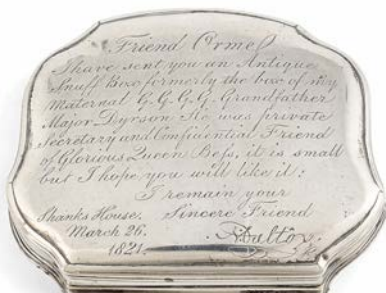 Friend Ormel
I have sent you an Antique
Snuff Box formerly the box of my
Maternal G.G.G.G. Grandfather
Major Dyrson He was private
Secretary and Confidential Friend
of Glorious Queen Bess, it is small
but I hope you will like it:
I remain your
Shanks House, Sincere Friend
March 26.
1821. Dalton